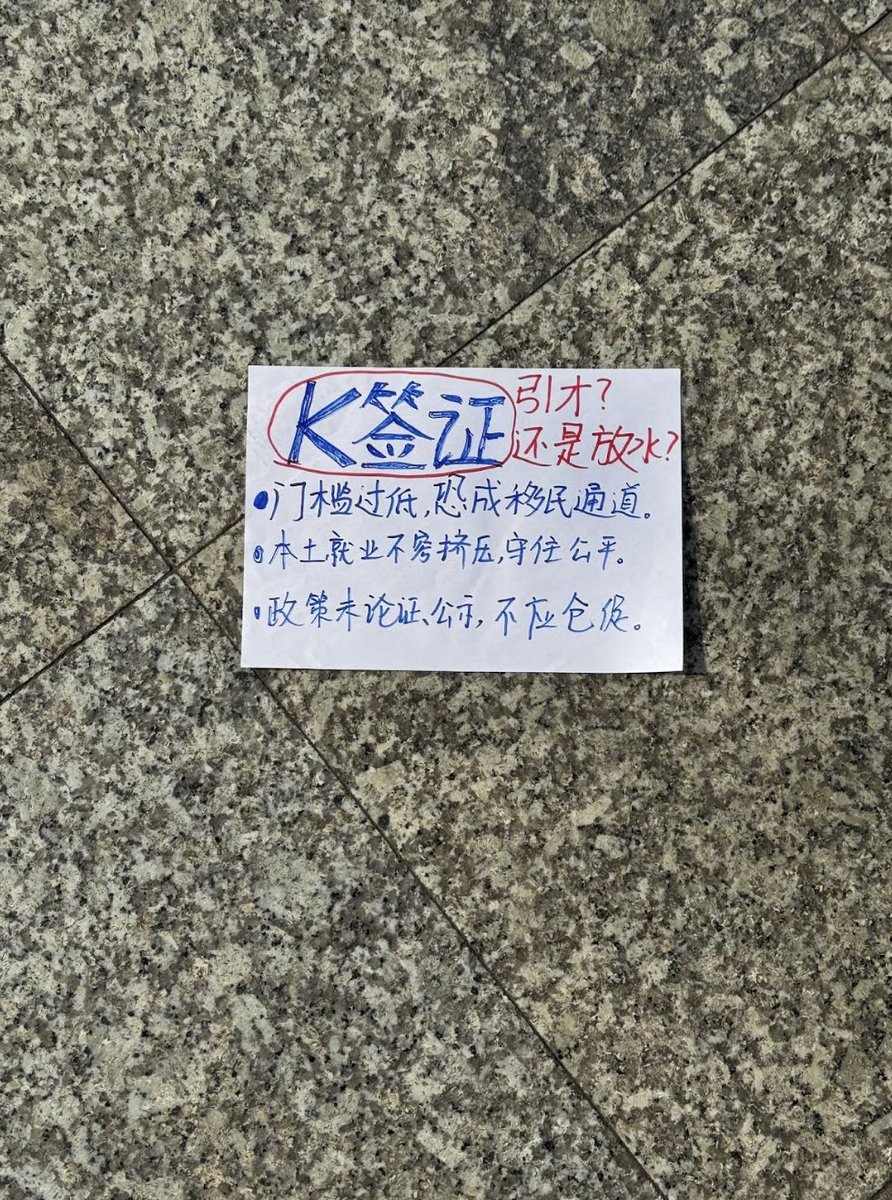 K签证 引才?
还是放水?
门槛过低,恐成移民通道。
本土就业不容挤压,守住公平。
政策未论证、公示,不应仓促。